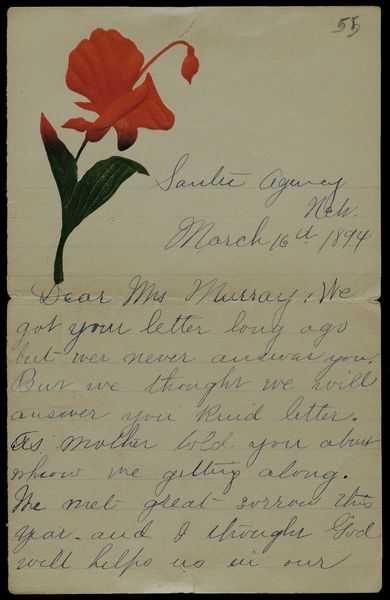 55
Santee Agency
Neb.
March 16d 1894
Dear Mrs Murray, We
got your letter long ago
but wer never answar you.
But we thought we will
answer you kind letter.
As mother told you about
whoow we getting along.
We met great sorrow this
year. and I thought God
will helps us in our